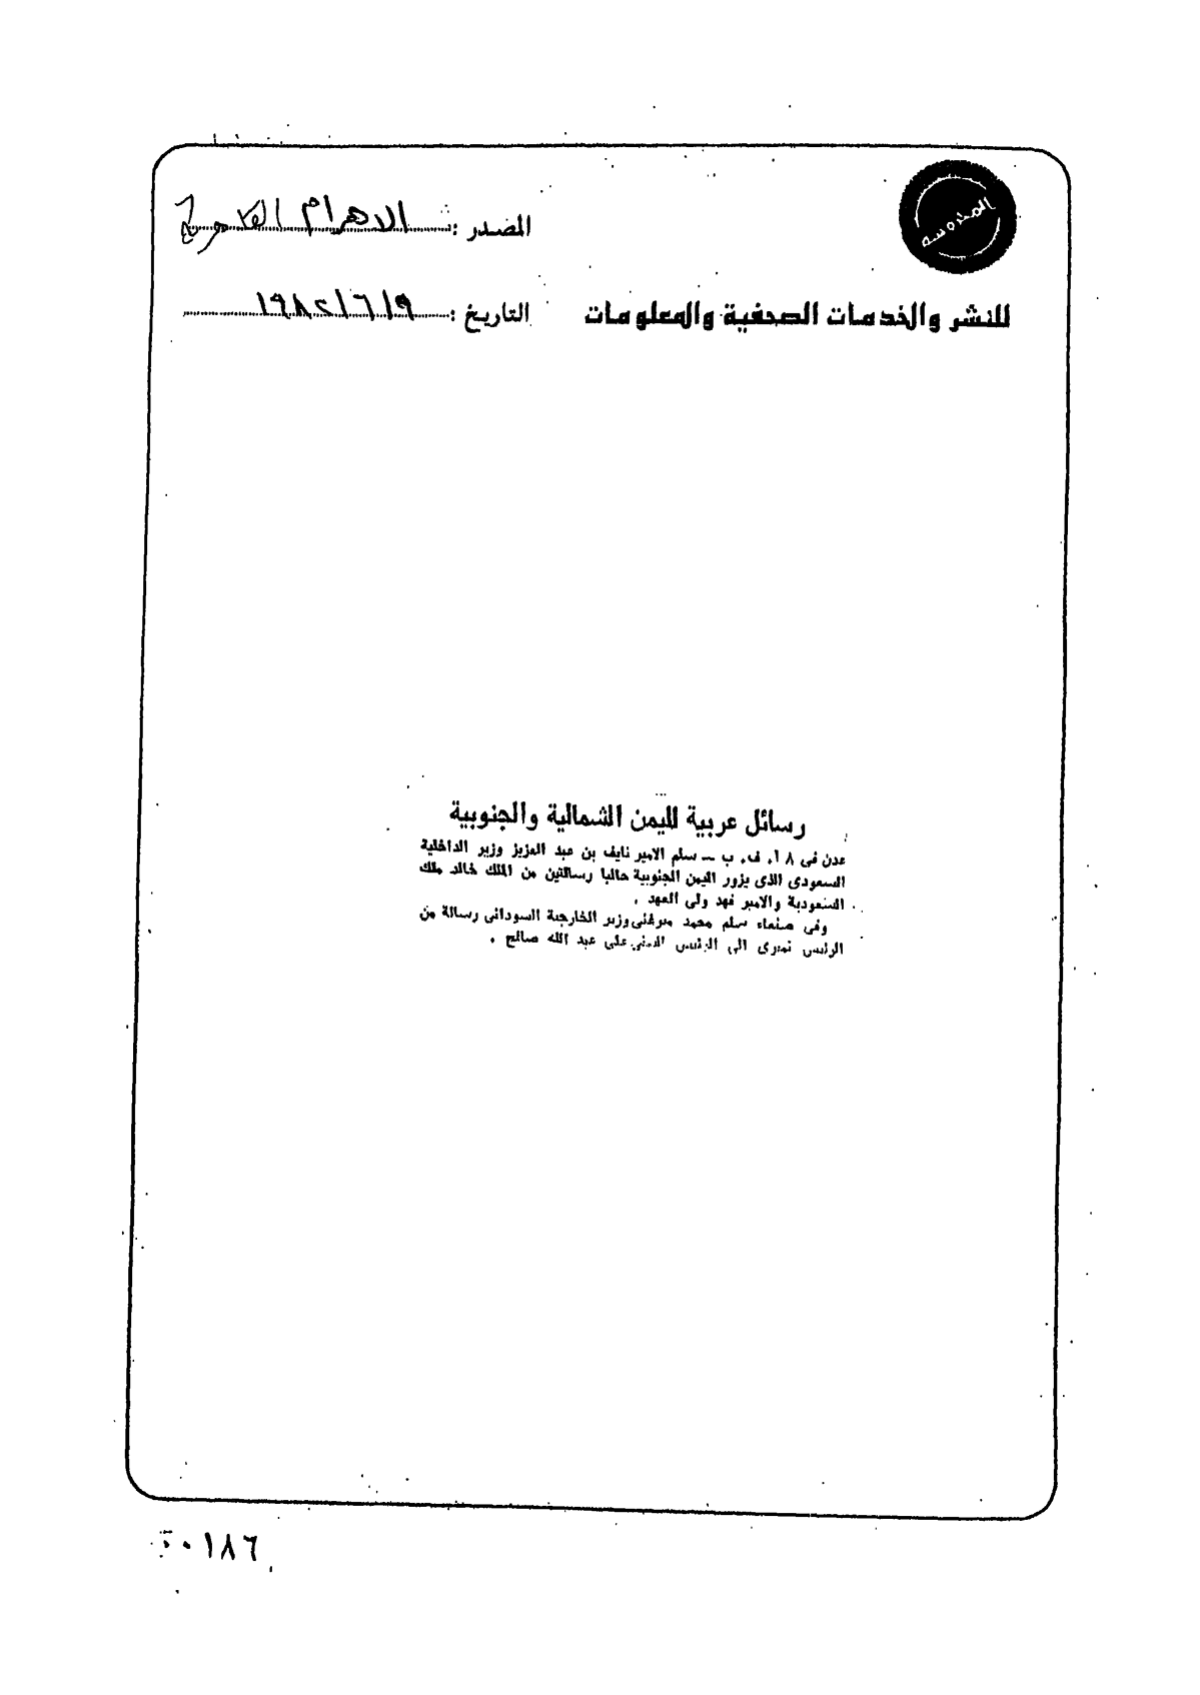 المحروسه
المصدر : الاهرام القاهرية
للنشر والخدمات الصحفية والمعلومات
التاريخ : ١٩٨٢/٦/٩
رسائل عربية لليمن الشمالية والجنوبية
عدن فى ٨ أ. ف. ب ــ سلم الامير نايف بن عبد العزيز وزير الداخلية
السعودى الذى يزور اليمن الجنوبية حاليا رسالتين من الملك خالد ملك
السعودية والامير فهد ولى العهد .
وفى صنعاء سلم محمد ميرغنى وزير الخارجية السودانى رسالة من
الرئيس نميرى الى الرئيس اليمنى على عبد الله صالح .
٠١٨٦